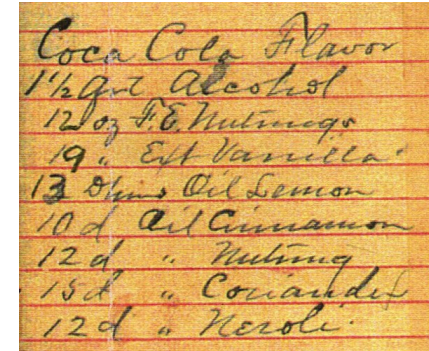 Coca Cola Flavor
1½ Alcohol
12 oz F.E. Nutmegs
19 " Ext Vanilla
13 Oil Lemon
10 d Oil Cinnamon
12 d " Nutmeg
15 d " Coriander
12 d " Neroli